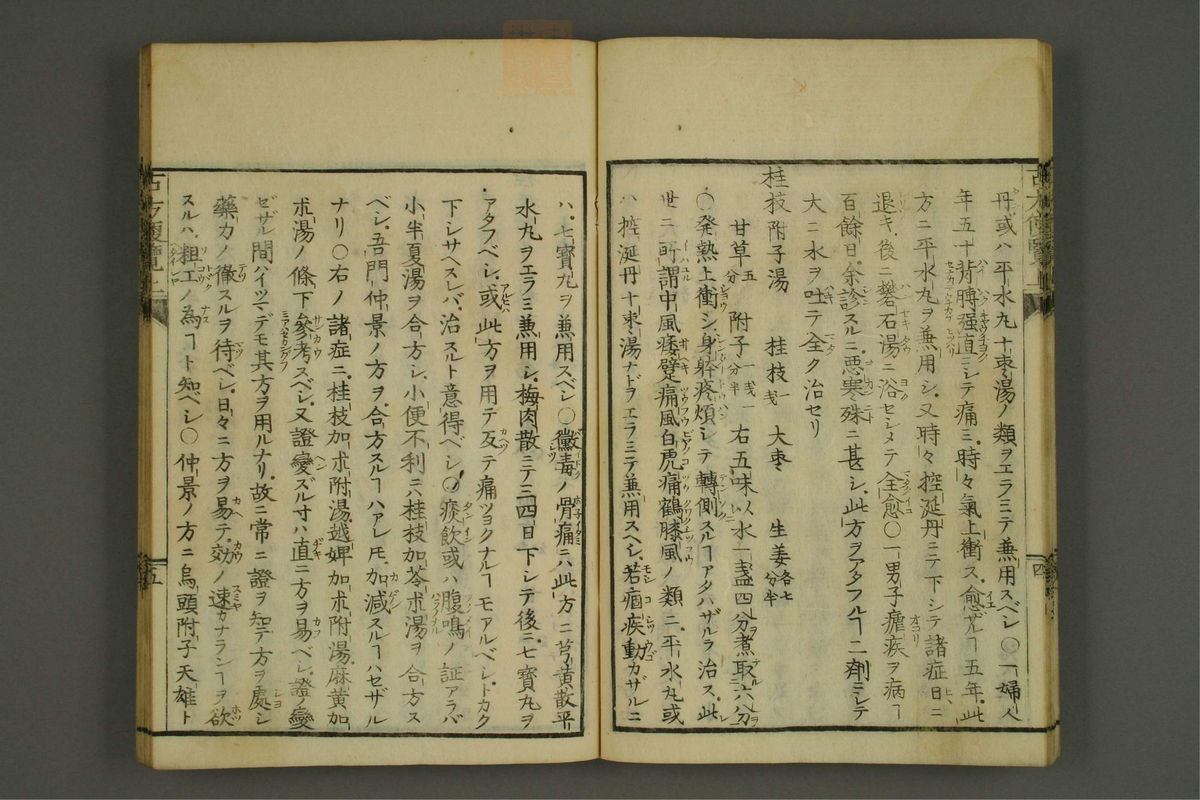 丹或ハ平水丸十棗湯ノ類ヲエラミテ兼用スベシ○一婦人
年五十背膊強直ミシテ痛ミ時々氣上衝ス愈ザルヿ五年此
方ニ平水丸ヲ兼用シ又時々控涎丹ミテ下シテ諸症日ニ
退キ後ニ礬石湯ニ浴セシメテ全愈○一男子瘧疾ヲ病ヿ
百餘日余診スルニ悪寒殊ニ甚シ此方ヲアタフルヿ二劑ミシテ
大ニ水ヲ吐テ全ク治セリ
桂枝附子湯 桂枝一戔 大棗 生姜各七分半
甘草五分 附子一戔一分半 右五味以水一盞四分煮取六分
○発熱上衝シ身躰疼煩シテ轉側スルヿアタハザルヲ治ス此
世ニ所謂中風痿躄痛風白虎痛鶴膝風ノ類ニ平水丸或
ハ控涎丹十棗湯ナドヲエラミテ兼用スヘシ若痼疾動カザルニ
ハ七寳丸ヲ兼用スベシ○黴毒ノ骨痛ニハ此方ニ芎黄散平
水丸ヲエラミ兼用シ梅肉散ニテ三四日下シテ後ニ七寳丸ヲ
アタフベシ或此方ヲ用テ反テ痛ツヨクナルヿモアルベシトカク
下シサヘスレバ治スルト意得ベシ○痰飲或ハ腹鳴ノ証アラバ
小半夏湯ヲ合方シ小便不利ニハ桂枝加苓朮湯ヲ合方ス
ベシ吾門仲景ノ方ヲ合方スルヿハアレ𪜈加減スルヿハセザル
ナリ○右ノ諸症ニ桂枝加朮附湯越婢加朮附湯麻黄加
朮湯ノ條下参考スベシ又證變ズル寸ハ直ニ方ヲ易ベシ證ノ變
ゼザル間ハイツマデモ其方ヲ用ルナリ故ニ常ニ證ヲ知テ方ヲ處シ
藥力ノ徹スルヲ待ベシ日々ニ方ヲ易テ効ノ速カナランヿヲ欲
スルハ粗工ノ為ヿト知ベシ○仲景ノ方ニ烏頭附子天雄ト
四
五